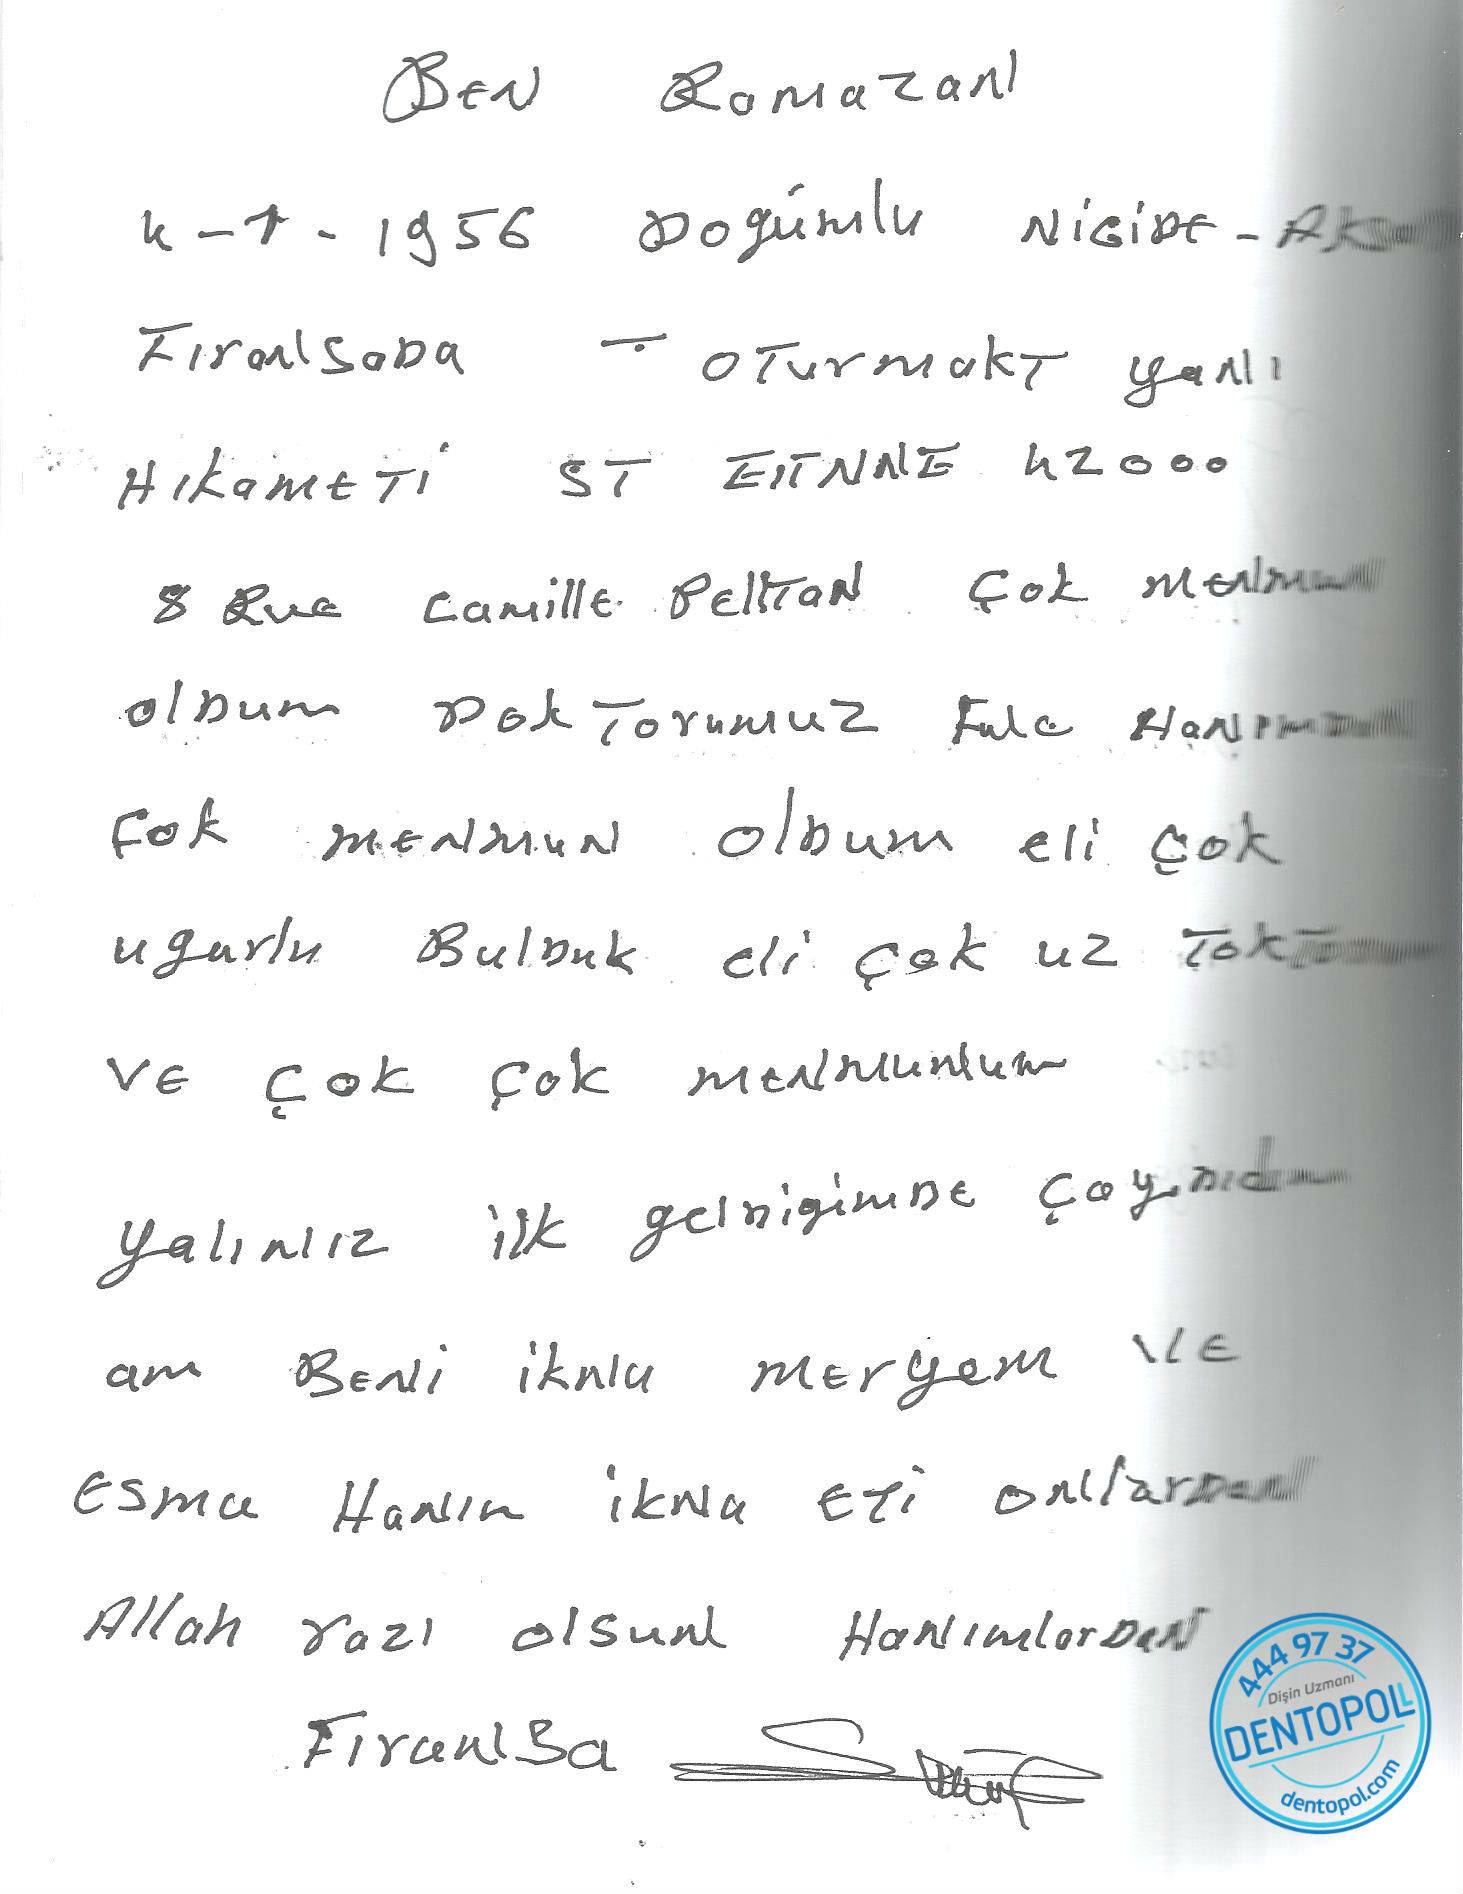 BEN Ramazan
4-1-1956 Doğumlu NiĞiDE-
Fıransada OTurmakT yanı
HıkameTi ST EITNNE 42000
8 Rue Camille PelltaN Çok memnun
olDum DokTorumuz Hanımdan
Çok memnun olDum eli Çok
uğurlu BulDuk eli Çok uz
VE Çok Çok memnunum
yalınız ilk gelDiğimDE
am Beni ikna meryem VE
Esma Hanım ikna ETi onlarDan
Allah razı olsun HanımlarDan
Fıransa
444 97 37
Dişin Uzmanı
DENTOPOLL
dentopol.com